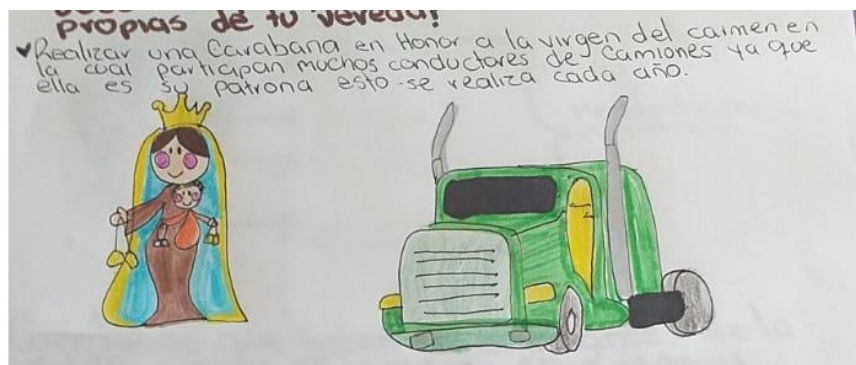 propias de tu vereda?
♥Realizar una Carabana en Honor a la virgen del carmen en
la cual participan muchos conductores de Camiones ya que
ella es su patrona esto se realiza cada año.